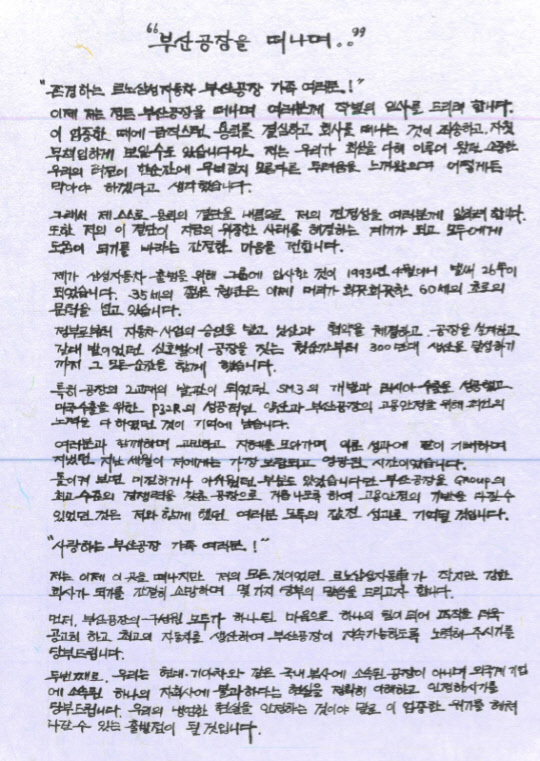 "부산공장을 떠나며.."
"존경하는 르노삼성자동차 부산공장 가족 여러분.!"
이제 저는 정든 부산공장을 떠나며 여러분께 작별의 인사를 드리려 합니다.
이 엄중한 때에 갑작스런 용퇴를 결심하고 회사를 떠나는 것이 죄송하고, 자칫
무책임하게 보일수도 있습니다만, 저는 우리가 최선을 다해 이루어 왔던 소중한
우리의 터전이 한순간에 무너질지 모른다는 두려움을 느껴왔으며 어떻게든
막아야 하겠다고 생각했습니다.
그래서 제 스스로 용퇴의 결단을 내림으로 저의 진정성을 여러분께 알리려 합니다.
또한 저의 이 결단이 지금의 위중한 사태를 해결하는 계기가 되고 모두에게
도움이 되기를 바라는 간절한 마음을 전합니다.
제가 삼성자동차 출범을 위해 그룹에 입사한 것이 1993년 4월이니 벌써 26년이
되었습니다. 35세의 젊은 청년은 이제 머리가 희끗희끗한 60세의 초로의
문턱을 넘고 있습니다.
정부로부터 자동차 사업의 승인을 받고 닛산과 협약을 체결하고 공장을 설계하고
갈대 밭이었던 신호벌에 공장을 짓는 첫순간부터 300만대 생산을 달성하기
까지 그 모든 순간을 함께 했습니다.
특히 공장의 2교대의 발판이 되었던 SM3의 개발과 러시아 수출을 성공했고
미국수출을 위한 P32R의 성공적인 양산과 부산공장의 고용안정을 위해 최선의
노력을 다 하였던 것이 기억에 남습니다.
여러분과 함께하며 고민하고 지혜를 모아가며 이룬 성과에 같이 기뻐하며
지냈던 지난 세월이 저에게는 가장 보람되고 영광된 시간이었습니다.
돌이켜 보면 미진하거나 아쉬웠던 부분도 있었습니다만 부산공장을 Group의
최고 수준의 경쟁력을 갖춘 공장으로 거듭나도록 하여 고용안정의 기반을 다질 수
있었던 것은 저와 함께 했던 여러분 모두의 값진 성과로 기억될 것입니다.
"사랑하는 부산공장 가족 여러분.!"
저는 이제 이 곳을 떠나지만 저의 모든 것이었던 르노삼성자동車가 작지만 강한
회사가 되기를 간절히 소망하며 몇 가지 당부의 말씀을 드리고자 합니다.
먼저, 부산공장의 구성원 모두가 하나된 마음으로 하나의 팀이 되어 조직을 더욱
공고히 하고 최고의 자동차를 생산하여 부산공장이 지속가능하도록 노력해 주시기를
당부드립니다.
두번째로, 우리는 현대·기아차와 같은 국내 본사에 소속된 공장이 아니며 외국계 기업
에 소속된 하나의 자회사에 불과 하다는 현실을 정확히 이해하고 인정하시기를
당부드립니다. 우리의 냉엄한 현실을 인정하는 것이야 말로 이 엄중한 위기를 헤쳐
나갈 수 있는 출발점이 될 것입니다.